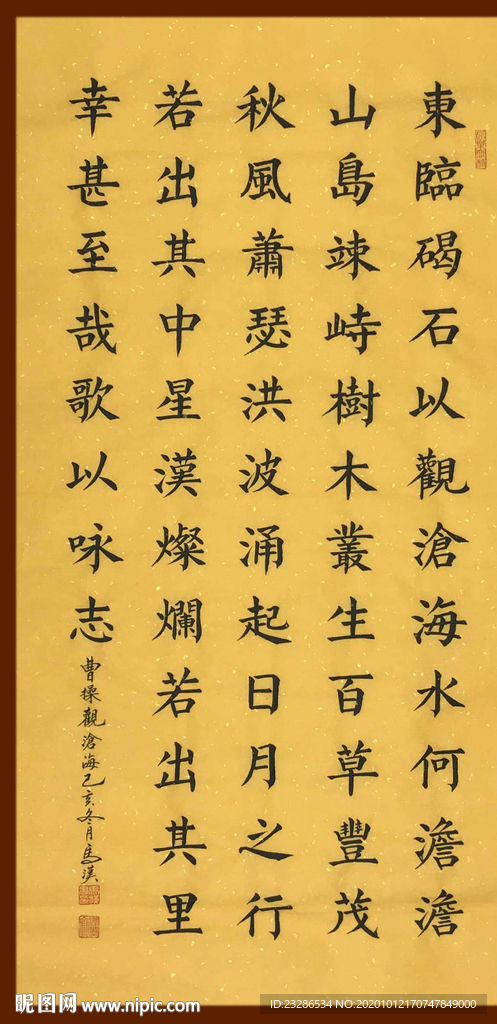 東臨碣石以觀滄海水何澹澹
山島竦峙樹木叢生百草豐茂
秋風蕭瑟洪波涌起日月之行
若出其中星漢燦爛若出其里
幸甚至哉歌以咏志
曹操觀滄海己亥冬月馬漢
昵图网 www.nipic.com
ID:23286534 NO:20201012170747849000